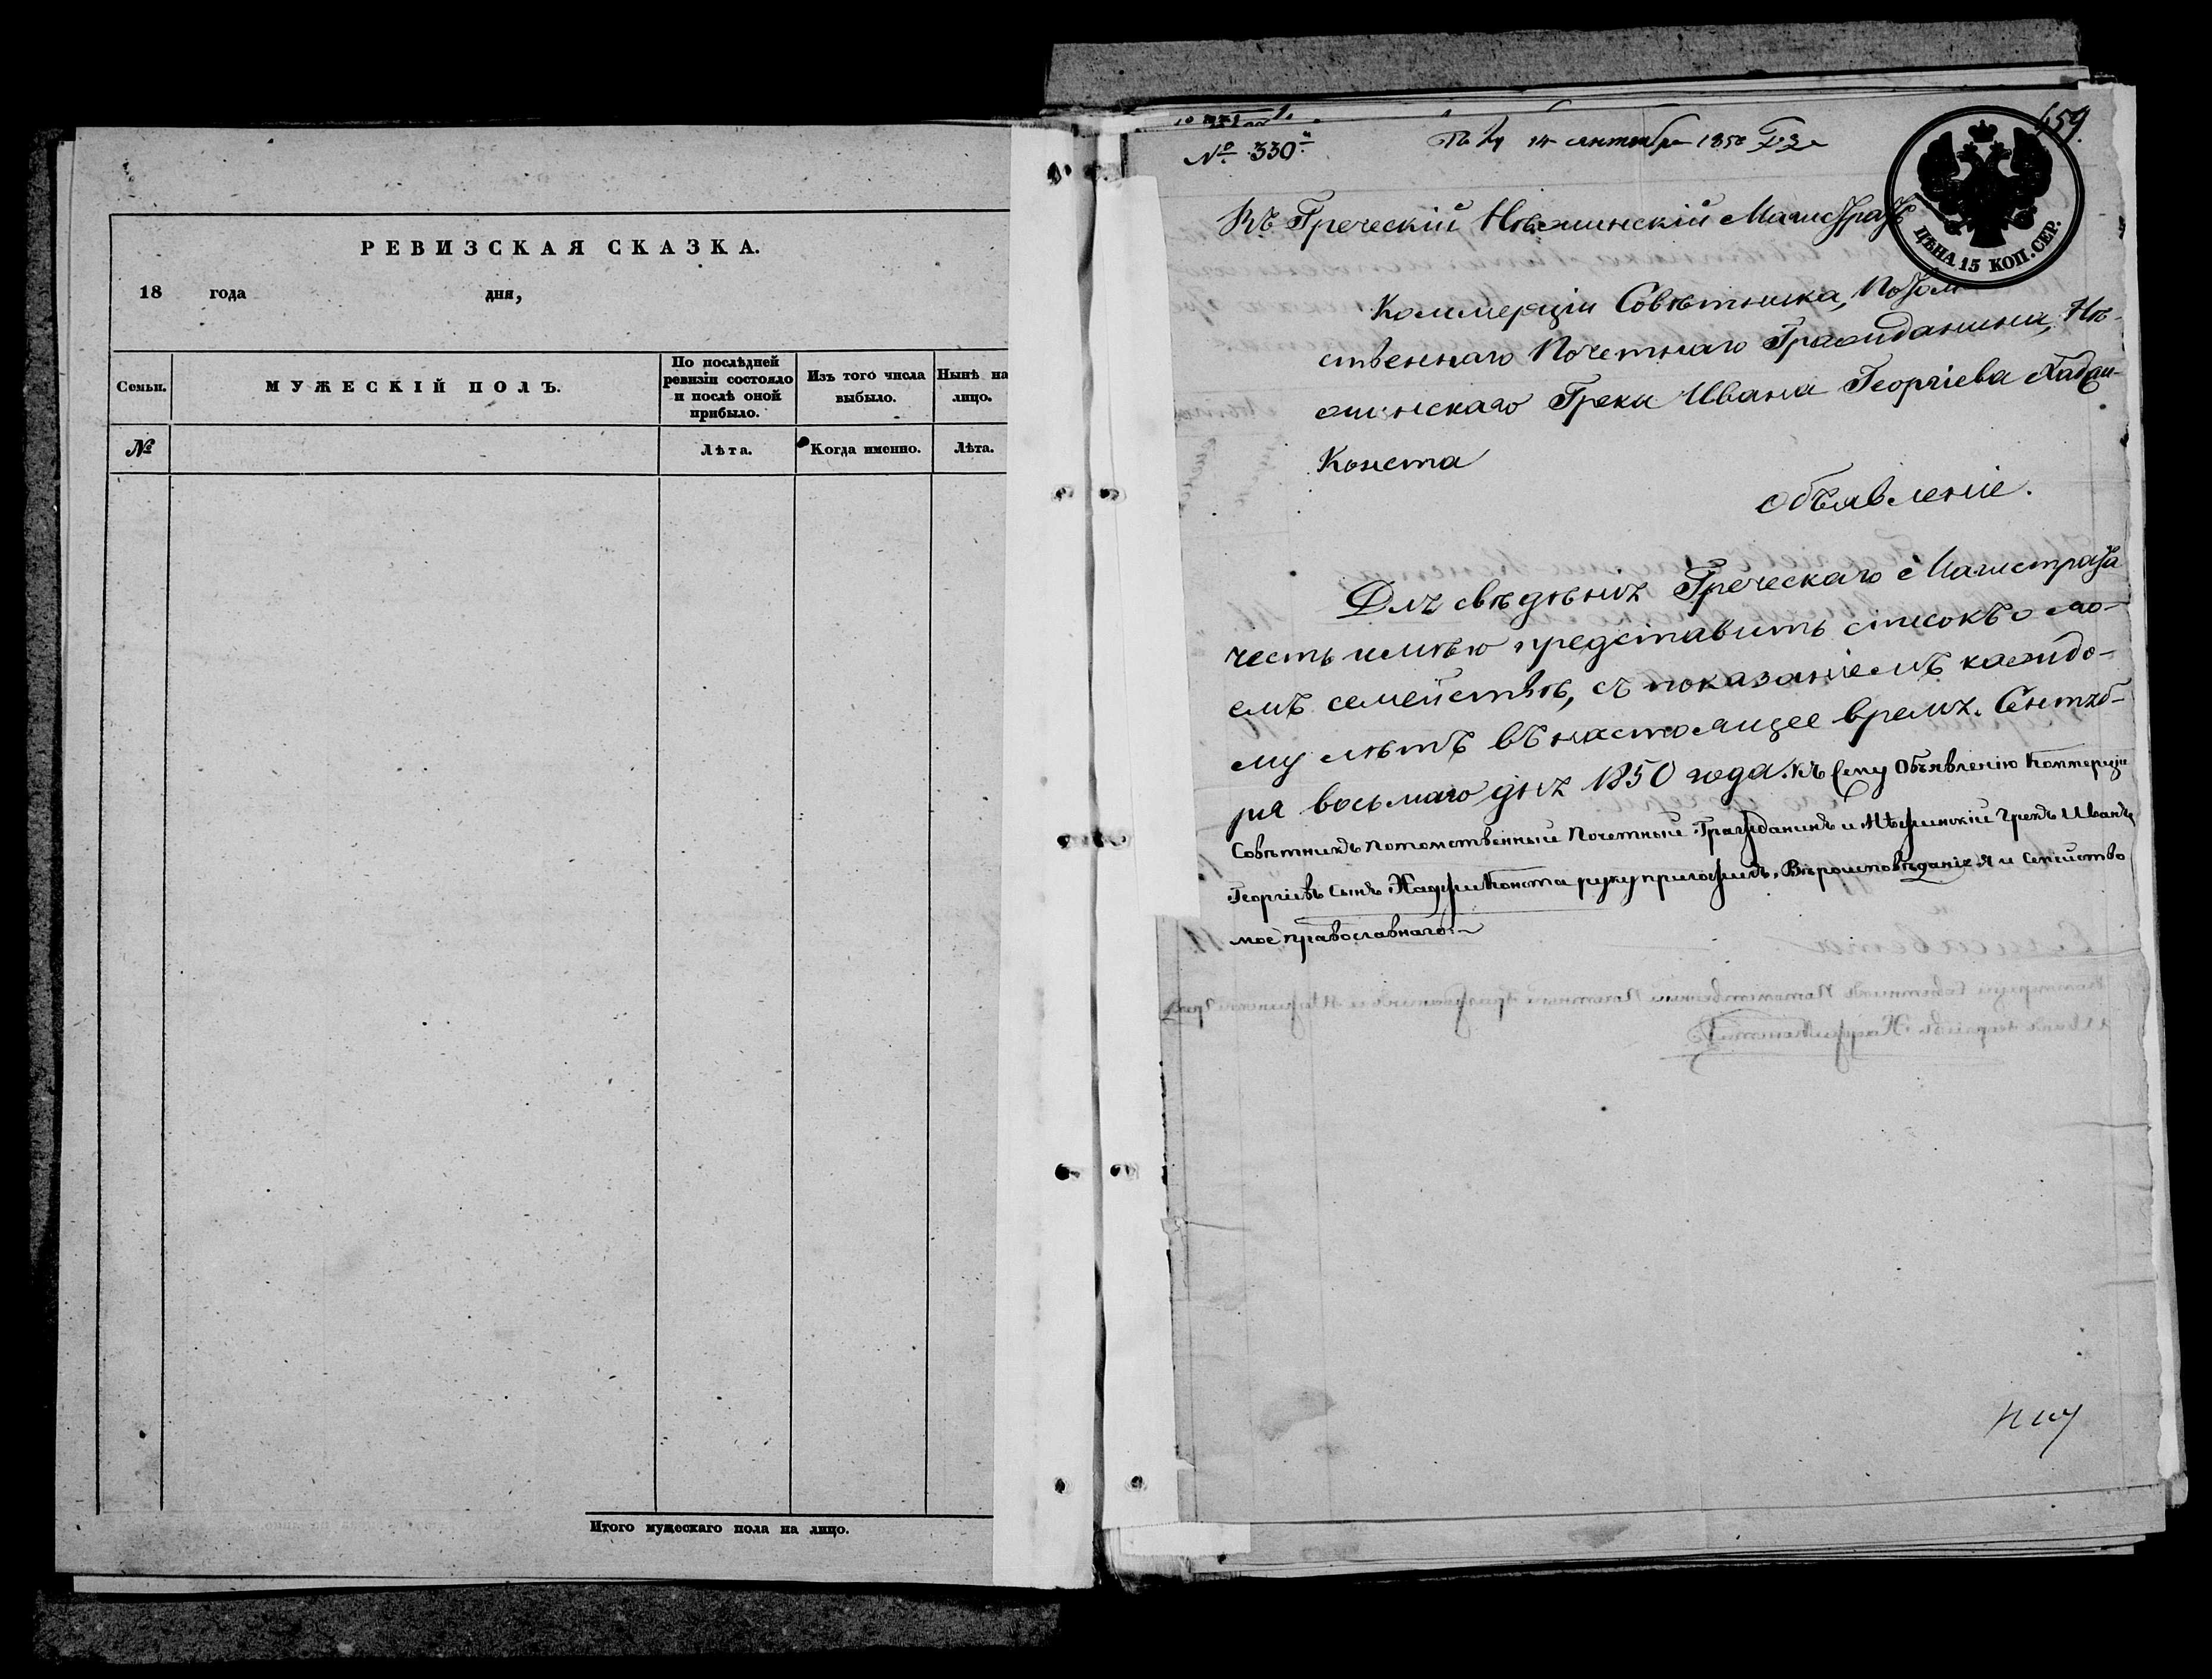 РЕВИЗСКАЯ СКАЗКА.
18 года дня,
Семьи.
МУЖЕСКІЙ ПОЛЪ.
По послѣдней
ревизіи состояло
и послѣ оной
прибыло.
Изъ того числа
выбыло.
Нынѣ на
лицо.
№
Лѣта.
Когда именно.
Лѣта.
Итого мужескаго пола на лицо.
№ 330
14 сентября 1850
459
ЦѢНА 15 КОП. СЕР.
Въ Греческій Нѣжинскій Магистратъ
Коммерціи Совѣтника, Потом-
ственнаго Почетнаго Гражданина, Нѣ-
жинскаго Грека Ивана Георгіева Хаджи-
Конста
Объявленіе.
Для свѣдѣнія Греческаго Магистрата
честь имѣю представить списокъ о мо-
емъ семействѣ, съ показаніемъ каждо-
му лѣтъ въ настоящее время. Сентяб-
ря восьмаго дня 1850 года. Къ сему Объявленію Коммерціи
Совѣтникъ Потомственный Почетный Гражданинъ и Нѣжинскій Грекъ Иванъ
Георгіевъ Сынъ ХаджиКонста руку приложилъ. Вѣроисповѣданія я и семѣйство
мое православнаго